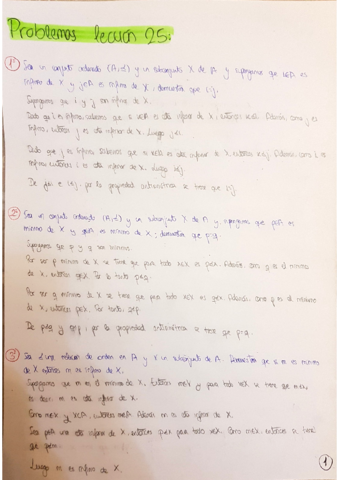 Problemas lección 25:
1) Sea un conjunto ordenado (A,≤) y un subconjunto X de A y supongamos que i∈A es
ínfimo de X y j∈A es ínfimo de X, demuestra que i=j.
Supongamos que i y j son ínfimos de X.
Dado que i es ínfimo, sabemos que si k∈A es cota inferior de X, entonces k≤i. Además, como j es
ínfimo, entonces j es cota inferior de X. Luego j≤i.
Dado que j es ínfimo sabemos que si k∈A es cota inferior de X, entonces k≤j. Además, como i es
ínfimo entonces i es cota inferior de X. Luego i≤j.
De j≤i e i≤j, por la propiedad antisimétrica se tiene que i=j
2) Sea un conjunto ordenado (A,≤) y un subconjunto X de A y supongamos que p∈A es
mínimo de X y q∈A es mínimo de X, demuestra que p=q.
Supongamos que p y q son mínimos.
Por ser p mínimo de X se tiene que para todo x∈X es p≤x. Además, como q es el mínimo
de X, entonces q∈X. Por lo tanto, p≤q.
Por ser q mínimo de X se tiene que para todo x∈X es q≤x. Además, como p es el mínimo
de X, entonces p∈X. Por lo tanto, q≤p.
De p≤q y q≤p, por la propiedad antisimétrica se tiene que p=q.
3) Sea ≤ una relación de orden en A y X un subconjunto de A. Demuestra que si m es mínimo
de X entonces m es ínfimo de X.
Supongamos que m es el mínimo de X. Entonces m∈X y para todo x∈X se tiene que m≤x,
es decir m es cota inferior de X.
Como m∈X y X⊆A, entonces m∈A. Además m es cota inferior de X.
Sea p∈A una cota inferior de X, entonces p≤x para todo x∈X. Como m∈X, entonces se tiene
que p≤m.
Luego m es ínfimo de X.
1